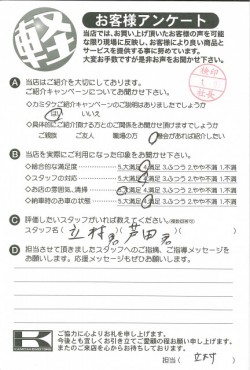 軽
お客様アンケート
当店では、お買い上げ頂いたお客様の声を可能
な限り現場に反映し、お客様により良い商品と
サービスを提供する事に努めています。
大変お手数ですが是非お声をお聞かせ下さい。
検印
社長
A 当店はご紹介を大切にしております。
ご紹介キャンペーンについてお聞かせ下さい。
◇カミタケご紹介キャンペーンのご説明はありましたでしょうか
はい いいえ
◇具体的にご紹介頂ける方とのご関係をお聞かせ頂けますでしょうか
ご親族 ご友人 職場の方 機会があれば紹介したい
B 当店を実際にご利用になった印象をお聞かせ下さい。
◇総合的な満足度 5.大満足 4.満足 3.ふつう 2.やや不満 1.不満
◇スタッフの対応 5.大満足 4.満足 3.ふつう 2.やや不満 1.不満
◇お店の雰囲気、清掃 5.大満足 4.満足 3.ふつう 2.やや不満 1.不満
◇納車時のお車の状態 5.大満足 4.満足 3.ふつう 2.やや不満 1.不満
C 評価したいスタッフがいれば教えてください。(複数回答可)
スタッフ名( 立村君 芦田君 )
D 担当させて頂きましたスタッフへのご指摘、ご指導メッセージを
お願いします。応援メッセージもぜひお願いします。
K
ご協力に心よりお礼を申し上げます。
今後とも宜しくお引き立てご愛顧の程お願い申し上げます。
またのご来店を心からお待ちしております。
担当( 立村 )